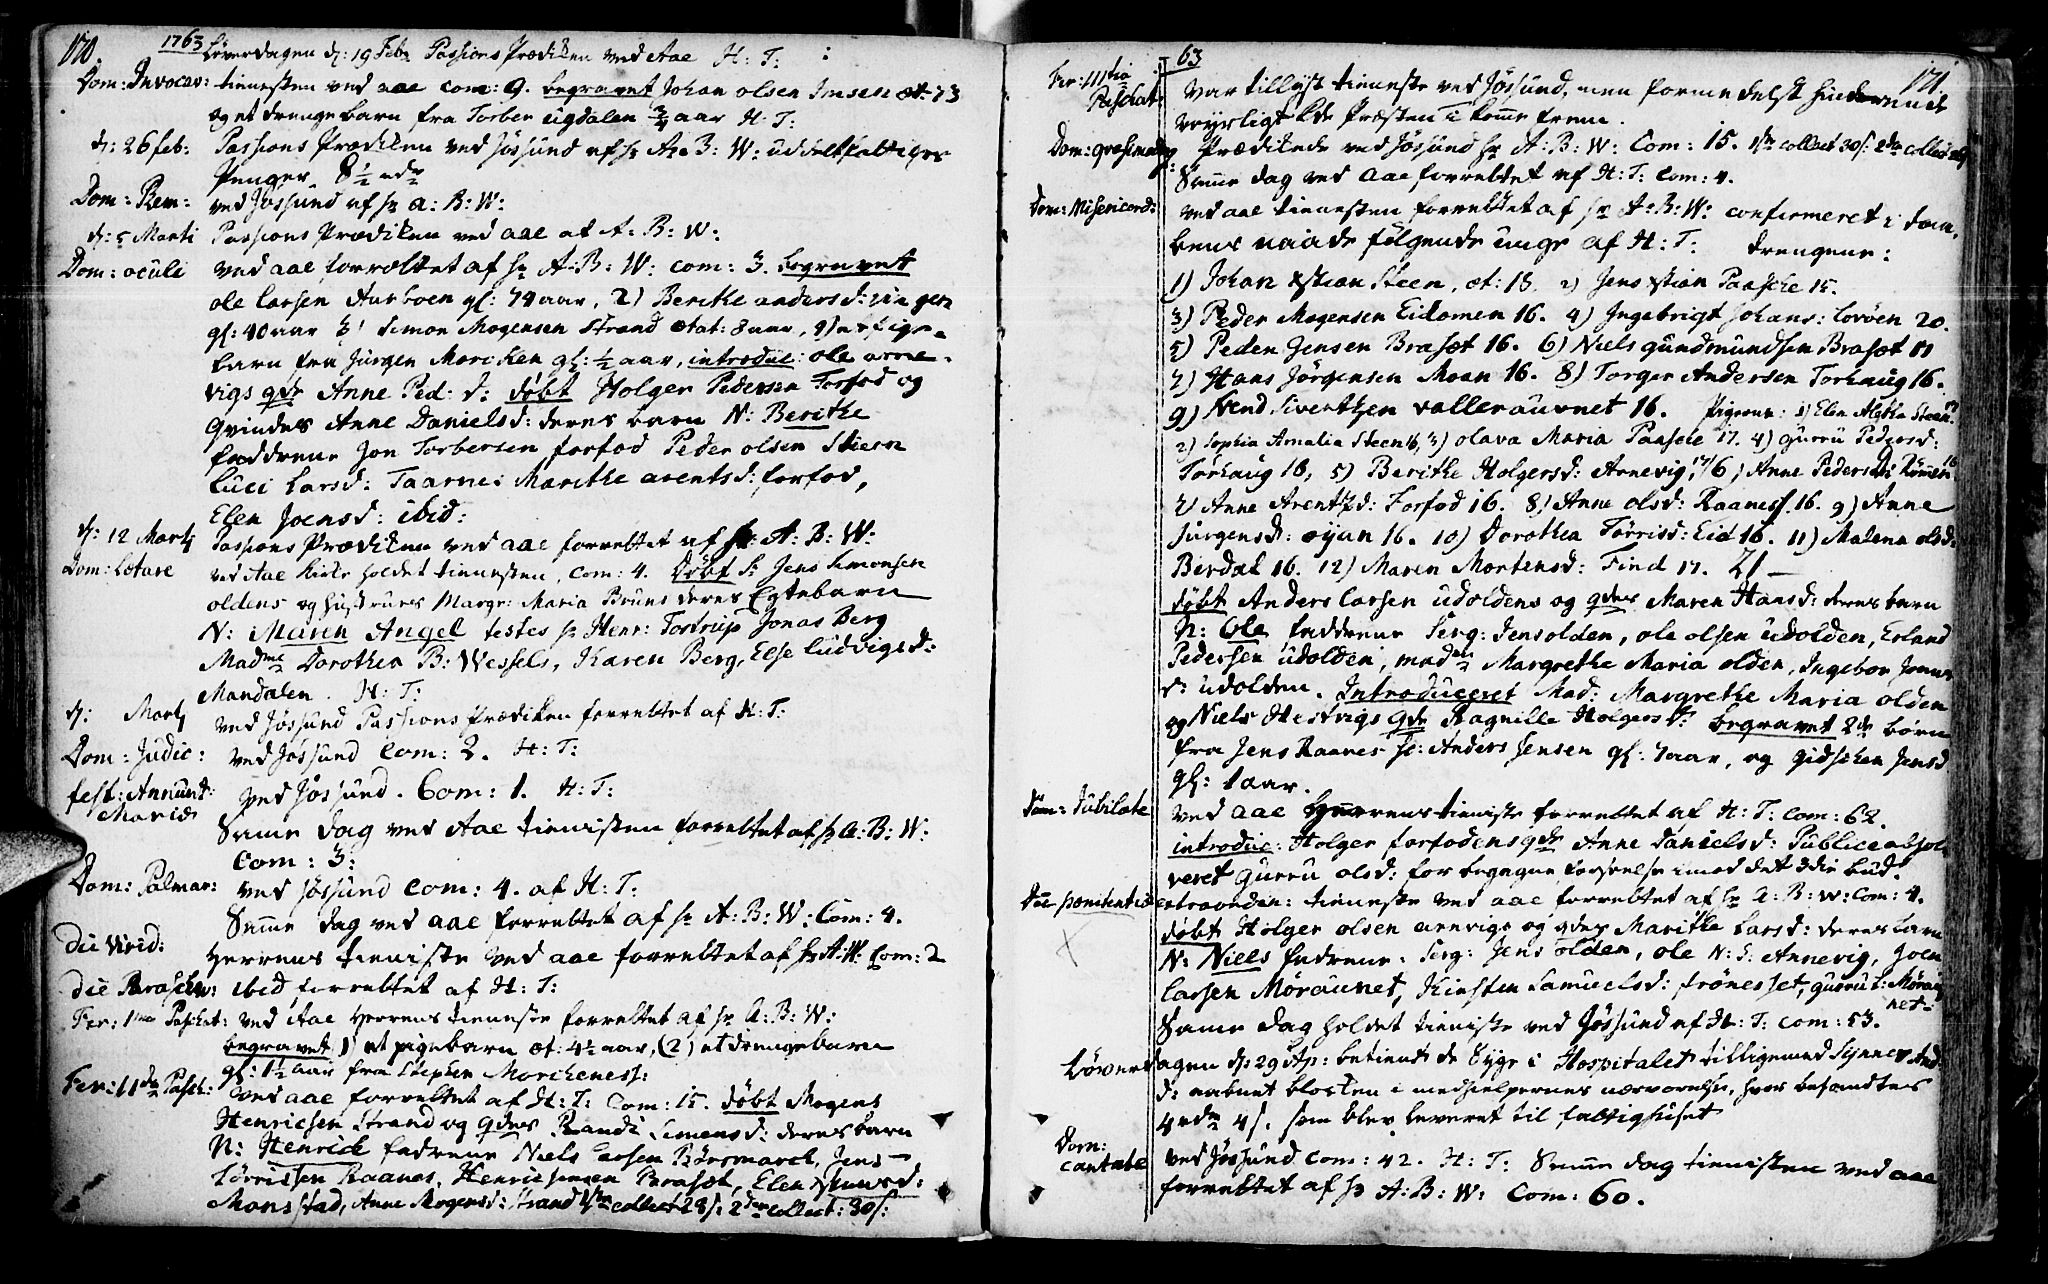 170.
1763 Løverdagen d: 19 Febr Passions Prædiken ved Aae H: T:
Dom: Invocav: tienesten ved aae com: 9. begravet Johan olsen æt: 73
og et drenge barn fra Torben ugdalen 3/4 aar H: T:
d: 26 feb: Passions Prædiken ved Jøssund af hr A: B: W: uddelt fattiges
Penger 8 1/2 
Dom: Rem: ved Jøssund af hr A: B: W:
d: 5 Marti Passions Prædiken ved aae af A: B: W:
Dom: oculi ved aae forrettet af hr A: B: W: com: 3. begravet
ole Larsen Aurboen gl: 74 aar, 2) Berithe andersd:
gl: 40 aar 3) Simon Mogensen Strand ætat: 8 aar, 4) et Pige-
barn fra Jürgen gl: 1/2 aar, introduc: ole arne-
vigs qde Anne Ped: d: døbt Holger Pedersen Forfod og
Qvindes Anne Daniels d: deres barn N: Berithe
faddrene Jon Torbersen forfod Peder olsen Skiern
Luci Lars d: Taarnes Marithe arents d: forfod,
Elen Joens d: ibid:
d: 12 Martj Passions Prædiken ved aae forrettet af hr: A: B: W:
Dom: Lætare ved Aae Kirke holdet tienesten, com: 4. Døbt Jens Simonsen
oldens og hustrues Margr: Maria Bruns deres Egtebarn
N: Maren Angel testes hr Henr: Tostrup Jonas Berg
Madme Dorothea B: Wessels, Karen Berg, Else Ludvigs d:
Mandalen. H: T:
d: Martj ved Jøssund Passions Prædiken forrettet af H: T:
Dom: Judic: ved Jøssund Com: 2. H: T:
fest: Annund: ved Jøssund. Com: 1. H: T:
Mariæ
Same dag ved Aae tienisten forrettet af hr A: B: W:
Com: 3:
Dom: Palmar: ved Jøssund com: 4. af H: T:
Same dag ved aae forrettet af hr A: B: W: Com: 4.
Die Virid: Herrens tieniste ved aae forrettet af hr A: W: Com: 2
Die Parascev: ibid forrettet af H: T:
Fer: 1ma Paschat: ved Aae Herrens tieneste forrettet af hr A: B: W:
begravet 1) et pigebarn æt: 4 1/2 aar, (2) et drengebarn
gl: 1 1/2 aar fra Stephen
Fer: 11da Pasch: ved aae forrettet af H: T: Com: 15. døbt Mogens
Henrichsen Strand og qdes Randi Simens d: deres barn
N: Henrich fadrene Niels Larsen Børsmarck, Jens
Tørrissen Raanes, Henric Jensen Brasæt, Elen d:
Monsstad, Anne Mogens d: Strand 1ste collect 28 s: 2den collect: 30 s:
63
171.
Fer: 111tia Paschat: var tillyst tieneste ved Jøssund, men formedelst hindrende
veyrligt kde Præsten i kome frem.
Dom: qvasimodog: Prædikede ved Jøssund hr A: B: W: Com: 15. 1ste collect 30 s: 2da collect
Same dag ved aae forrettet af H: T: Com: 4.
Dom: Misericord: ved aae tienesten forrettet af hr A: B: W: confirmeret i daa-
bens naade følgende unge af H: T: drengene:
1) Johan xstian Steen, æt: 18. 2) Jens xstian Paasche 15.
3) Peder Mogensen Eidomen 16. 4) Ingebrigt Johans: Lovøen 20.
5) Peder Jensen Brasæt 16. 6) Niels gundmundsen Brasæt 17
7) Hans Jørgensen Moan 16. 8) Torger Andersen Torhaug 16.
9) Svend Siverthsen vallerauvnet 16. Pigerne: 1) Elen Aletha Steen 17
2) Sophia Amalia Steen 16, 3) olava Maria Paasche 17. 4) gurru Peders d:
Torhaug 16, 5) Berithe Holgers d: Arnevig, 17 6) Anne Peders d: 16
7) Anne Arentz d: Forfod 16. 8) Anne ols d: Raanes 16. 9) Anne
Jürgens d: øyan 16. 10) Dorothea Tørris d: Eid 16. 11) Malena ols d:
Berdal 16. 12) Maren Mortens d: Find 17. 21 —
døbt Anders Larsen udoldens og qdes Maren Hans d: deres barn
N: Ole faddrene Serg: Jens olden, ole olsen udolden, Erland
Pedersen udolden, madme Margrethe Maria olden, Ingebor Jens
d: udolden. Introduceret Mad: Margrethe Maria olden
og Niels Hestvigs qde Ragnille Holgers d: begravet 2de børn
fra Jens Raanes hr: Anders Jensen gl: 7 aar, og Gidschen Jens d.
gl: 1 aar.
Dom: Jubilate ved aae Herrens tieniste forrettet af H: T: com: 62.
introduc: Holger forfodens qde Anne Daniels d: Publice absol-
veret gurru ols d: for begagne forseelse imod det 3die bud.
Die pænitentiæ extraordin: tieneste ved aae forrettet af hr A: B: W: Com: 4.
X døbt Holger olsen arnevigs og qdes Marithe Lars d: deres barn
N: Niels fadrene: Serg: Jens olden, ole N: S: Annevig, Joen
Larsen Møraunet, Kirsten Samuels d: Frønesset, gurru L: Mørau-
net-
Same dag holdet tieniste ved Jøssund af H: T: com: 53.
Løverdagen d: 29 Ap: betient de Syge i Hospitalet tilligemed Synnev And
d: aabnet blokken i medhielpernes nærværelse, hvor befandtes
4 4 s. som blev leveret til fattighuset
Dom: cantate ved Jøssund com: 42. H: T: Same dag tienisten ved aae
forrettet af hr A: B: W: Com: 60.